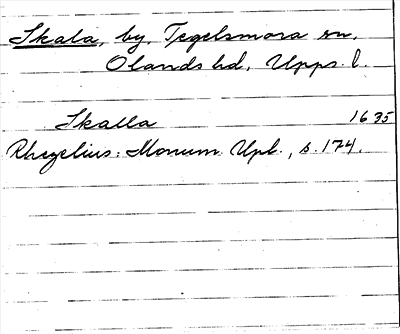 Skala, by, Tegelsmora sn,
Olands hd, Upps. l.
Skalla 1635
Rhezelius: Monum. Upl., s. 174.